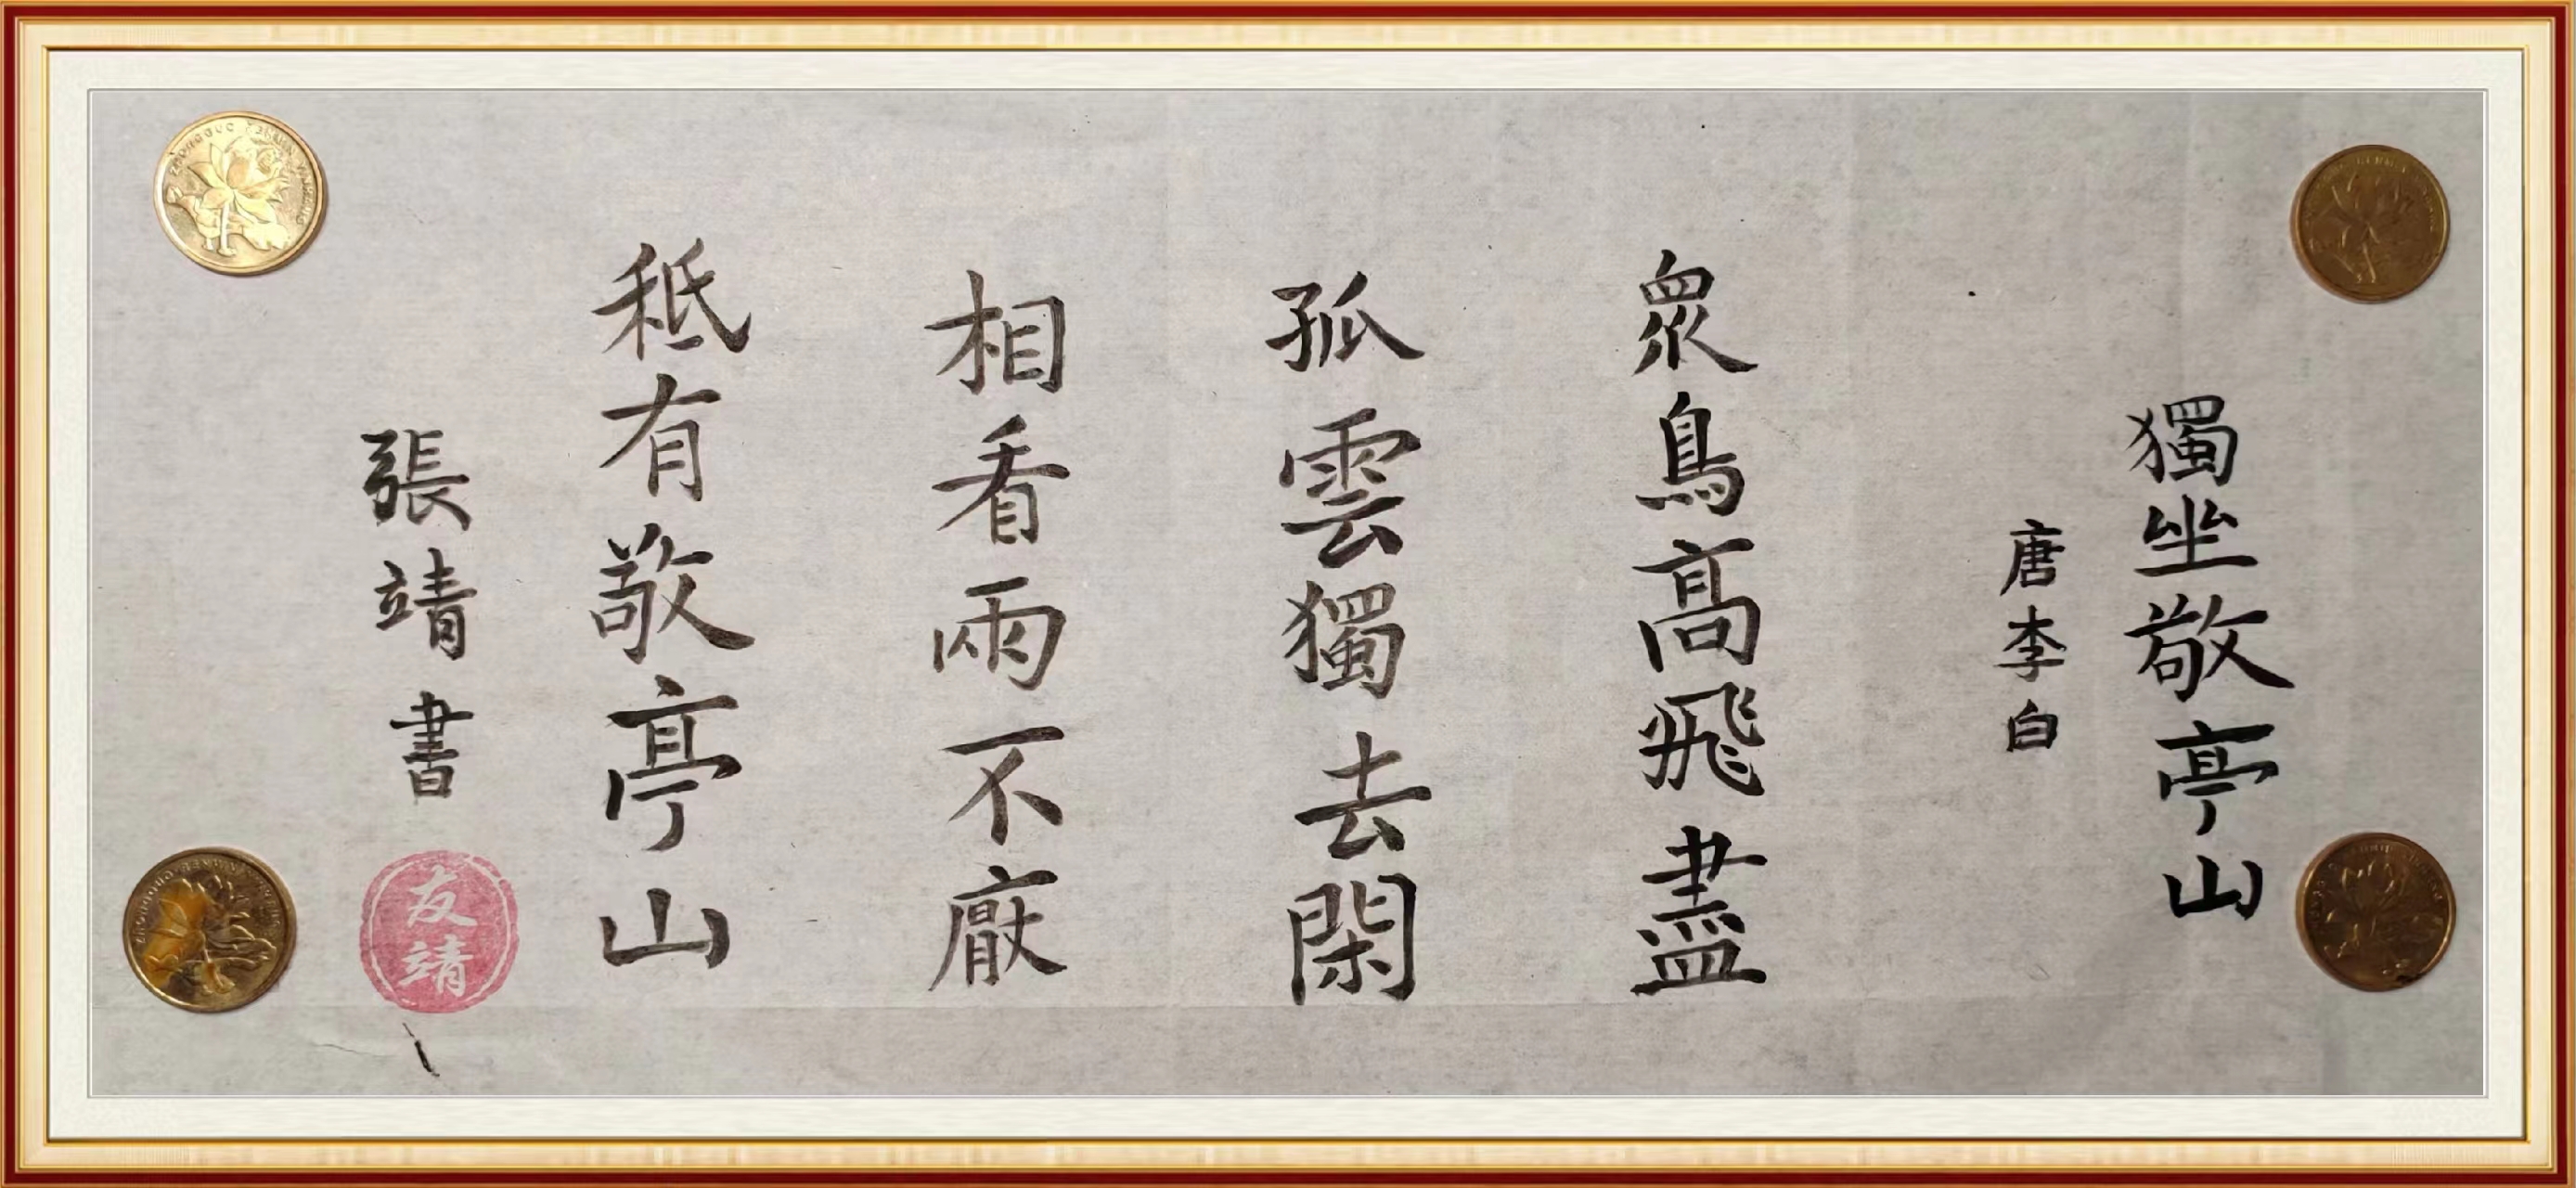 獨坐敬亭山
唐李白
眾鳥高飛盡
孤雲獨去閑
相看兩不厭
秪有敬亭山
張靖書
友靖